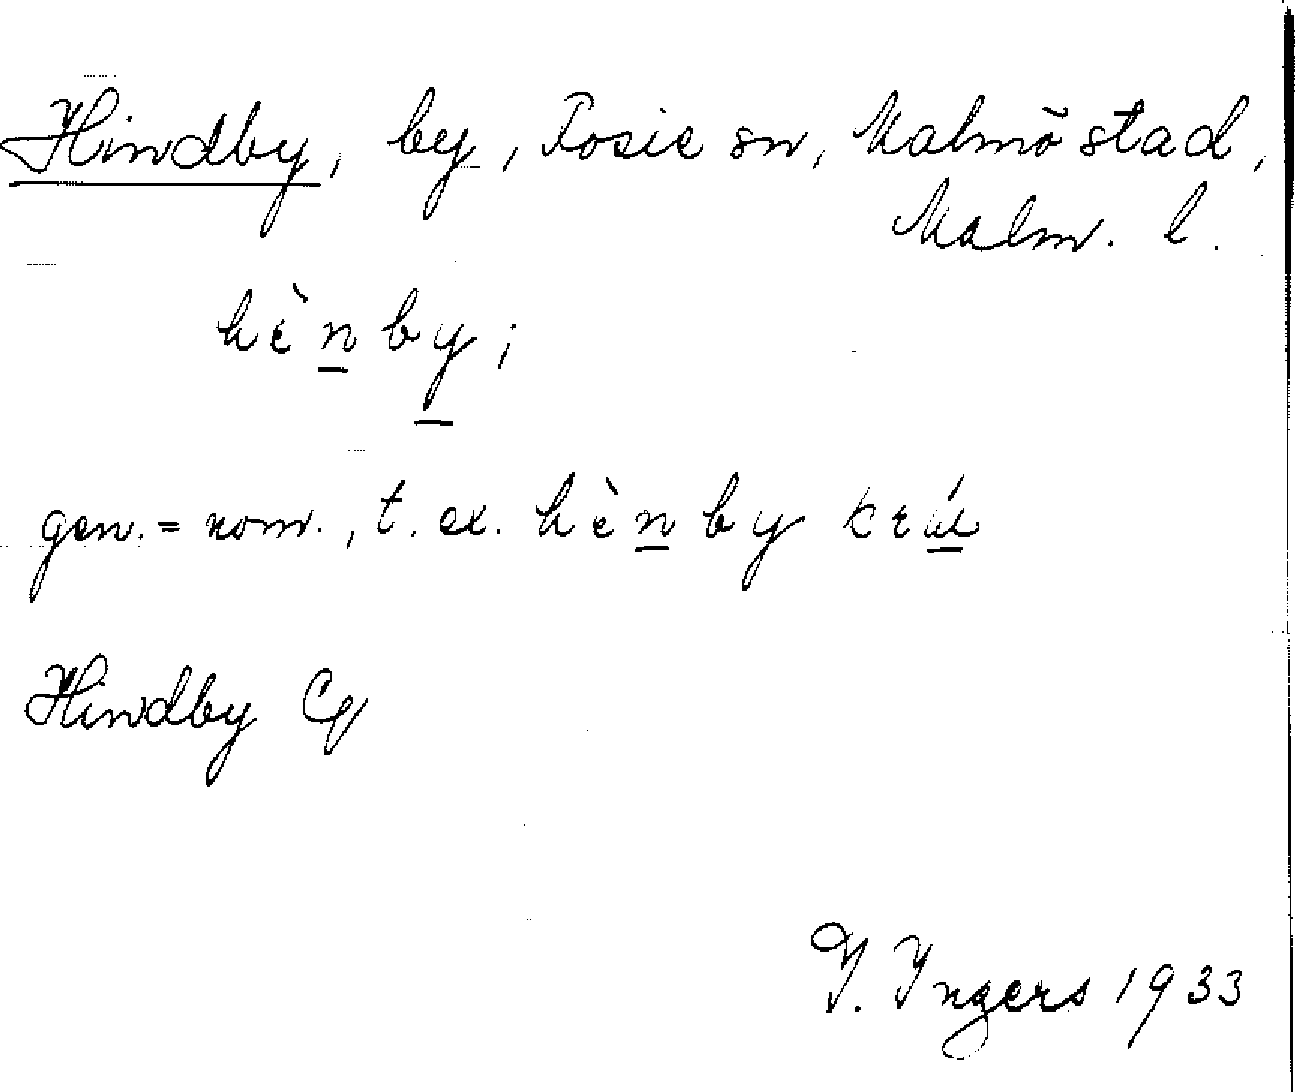 Hindby, by, Fosie sn, Malmö stad,
Malm. l.
hὲn̲by̲;
gen. = nom., t. ex. hὲn̲by
Hindby
I. Ingers 1933